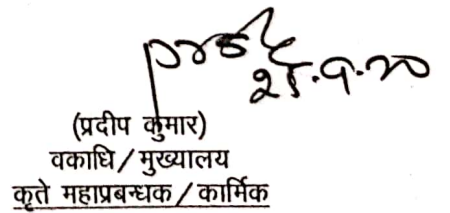 25.9.20
(प्रदीप कुमार)
वकाधि/मुख्यालय
कृते महाप्रबन्धक/कार्मिक